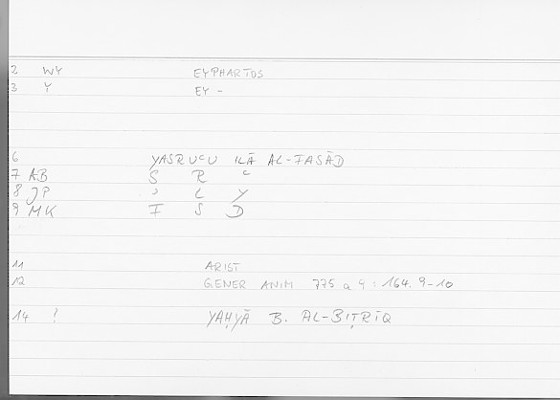 2 WY EYPHARTOS
3 Y EY -
6 YASRUᶜU ILĀ AL-FASĀD
7 AB S R ᶜ
8 JP ʾ L Y
9 MK F S D
11 ARIST
12 GENER ANIM 775 a 9 : 164. 9-10
14 ! YAḤYĀ B. AL-BIṬRĪQ